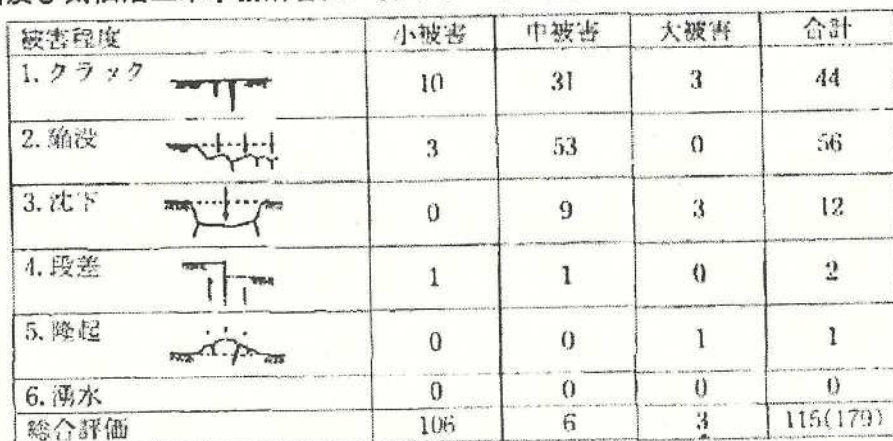 被害程度 小被害 中被害 大被害 合計
1. クラック 10 31 3 44
2. 陥没 3 53 0 56
3. 沈下 0 9 3 12
4. 段差 1 1 0 2
5. 隆起 0 0 1 1
6. 湧水 0 0 0 0
総合評価 106 6 3 115(179)